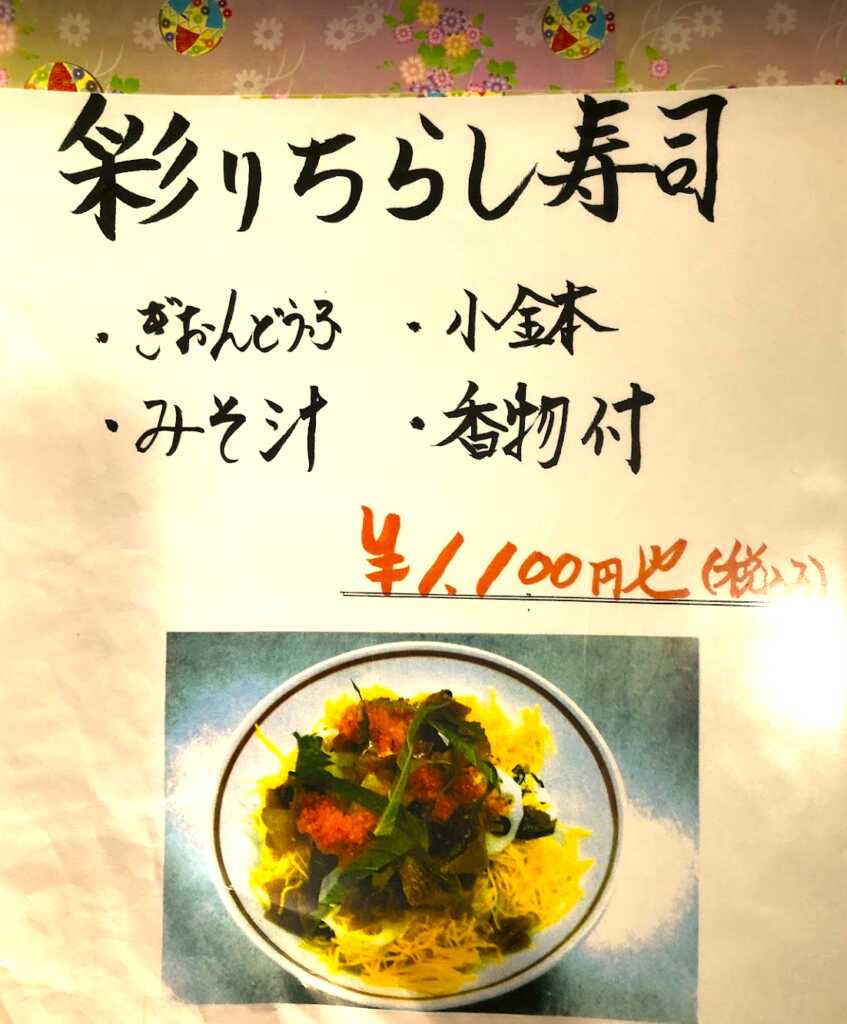 彩りちらし寿司
・ぎおんどうふ ・小鉢
・みそ汁 ・香物付
¥1,100円也(税込)